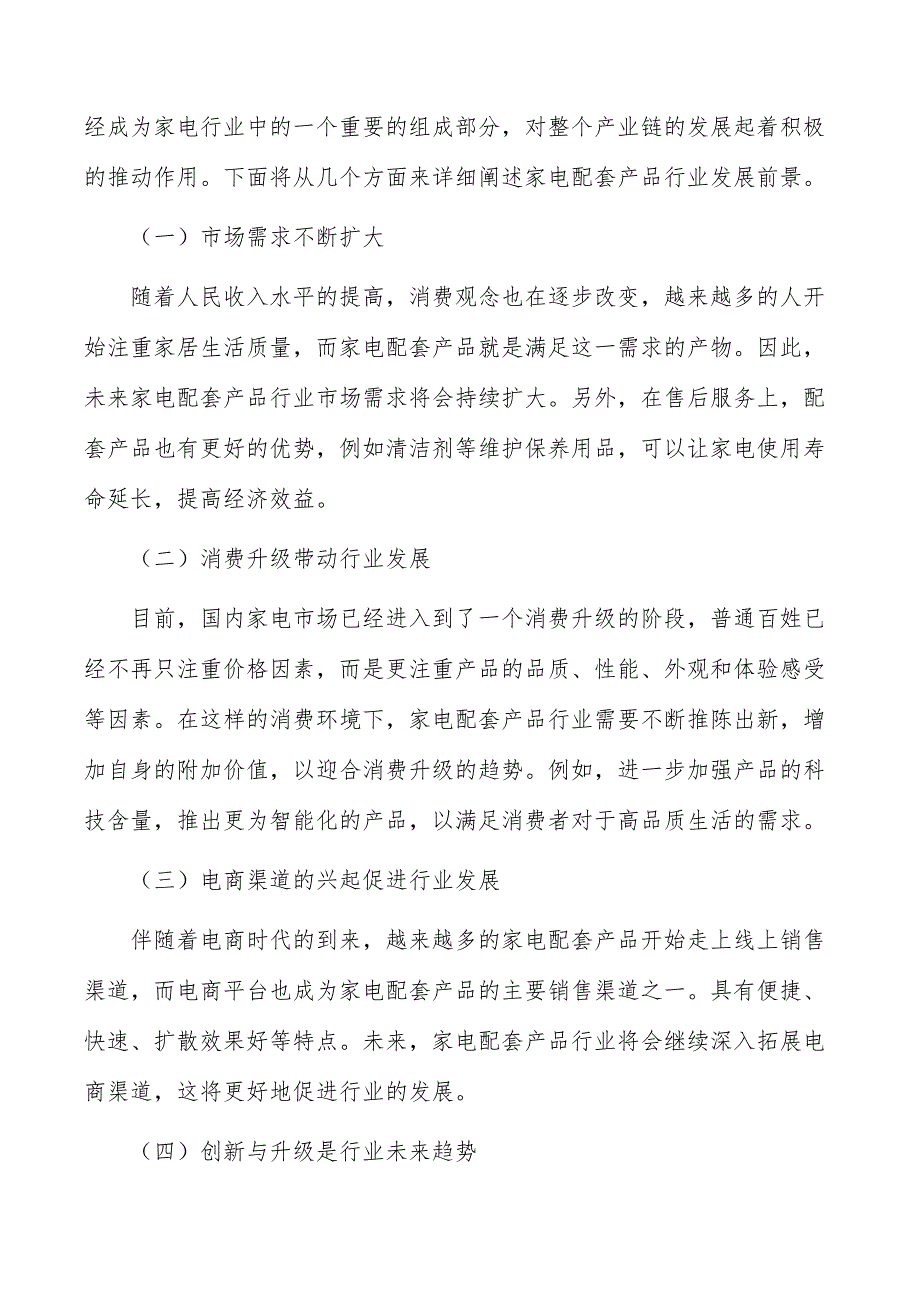 经成为家电行业中的一个重要的组成部分，对整个产业链的发展起着积极
的推动作用。下面将从几个方面来详细阐述家电配套产品行业发展前景。
（一）市场需求不断扩大
随着人民收入水平的提高，消费观念也在逐步改变，越来越多的人开
始注重家居生活质量，而家电配套产品就是满足这一需求的产物。因此，
未来家电配套产品行业市场需求将会持续扩大。另外，在售后服务上，配
套产品也有更好的优势，例如清洁剂等维护保养用品，可以让家电使用寿
命延长，提高经济效益。
（二）消费升级带动行业发展
目前，国内家电市场已经进入到了一个消费升级的阶段，普通百姓已
经不再只注重价格因素，而是更注重产品的品质、性能、外观和体验感受
等因素。在这样的消费环境下，家电配套产品行业需要不断推陈出新，增
加自身的附加价值，以迎合消费升级的趋势。例如，进一步加强产品的科
技含量，推出更为智能化的产品，以满足消费者对于高品质生活的需求。
（三）电商渠道的兴起促进行业发展
伴随着电商时代的到来，越来越多的家电配套产品开始走上线上销售
渠道，而电商平台也成为家电配套产品的主要销售渠道之一。具有便捷、
快速、扩散效果好等特点。未来，家电配套产品行业将会继续深入拓展电
商渠道，这将更好地促进行业的发展。
（四）创新与升级是行业未来趋势